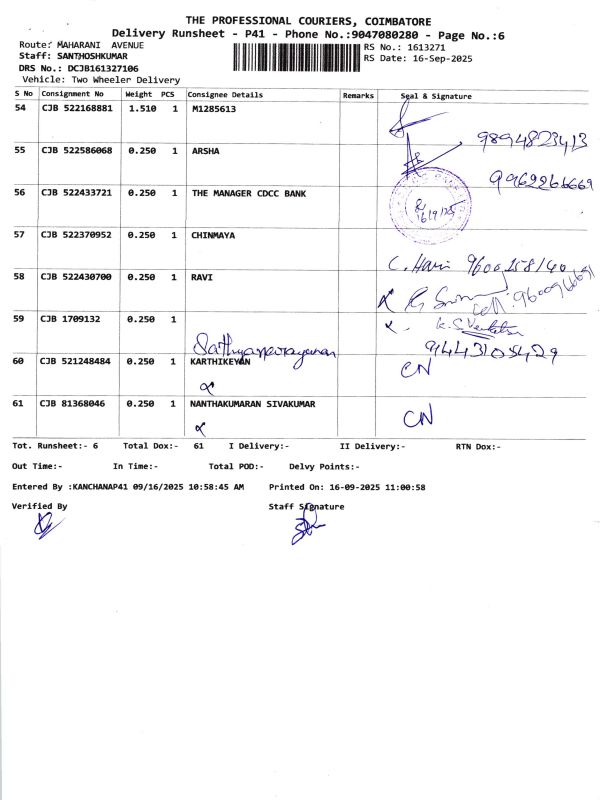 THE PROFESSIONAL COURIERS, COIMBATORE
Delivery Runsheet - P41 - Phone No.:9047080280 - Page No.:6
Route: MAHARANI AVENUE
RS No.: 1613271
Staff: SANTHOSHKUMAR
RS Date: 16-Sep-2025
DRS No.: DCJB161327106
Vehicle: Two Wheeler Delivery
S No Consignment No Weight PCS Consignee Details Remarks Seal & Signature
54 CJB 522168881 1.510 1 M1285613
9894823413
55 CJB 522586068 0.250 1 ARSHA
9962266669
56 CJB 522433721 0.250 1 THE MANAGER CDCC BANK
16/9/25
57 CJB 522370952 0.250 1 CHINMAYA
C. Hari 9600258140
58 CJB 522430700 0.250 1 RAVI
cell:
59 CJB 1709132 0.250 1
Sathyanarayanan
94443105429
60 CJB 521248484 0.250 1 KARTHIKEYAN CN
61 CJB 81368046 0.250 1 NANTHAKUMARAN SIVAKUMAR CN
Tot. Runsheet:- 6 Total Dox:- 61 I Delivery:- II Delivery:- RTN Dox:-
Out Time:- In Time:- Total POD:- Delvy Points:-
Entered By :KANCHANAP41 09/16/2025 10:58:45 AM Printed On: 16-09-2025 11:00:58
Verified By Staff Signature